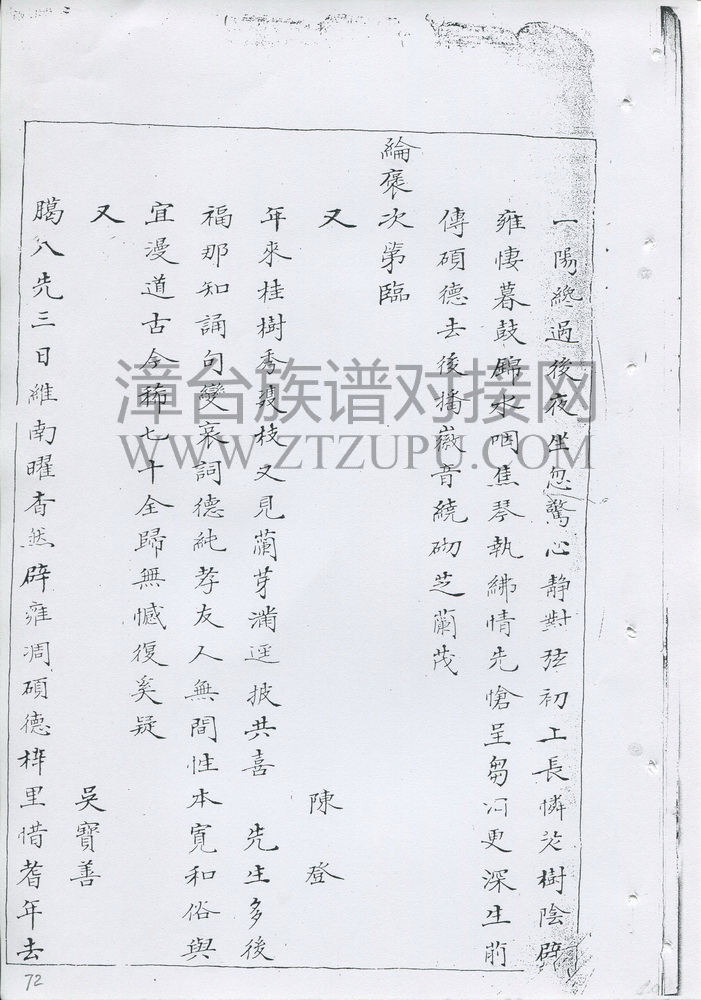 一陽纔過後夜坐忽驚心靜對弦初上長憐樹陰辟
雍悽暮鼓錦水咽焦琴執紼情先愴呈芻更深生前
傳碩德去後播徽音繞砌芝蘭茂
綸褒次第臨
又 陳登
年來桂樹秀雙枝又見蘭芽滿逕披共喜 先生多後
福那知誦句變哀詞德純孝友人無間性本寬和俗與
宜漫道古今稀七十全歸無憾復奚疑
又 吳寶善
臈八先三日維南曜杳然辟雍凋碩德梓里惜耆年去
72
漳台族谱对接网
WWW.ZTZUPU.COM